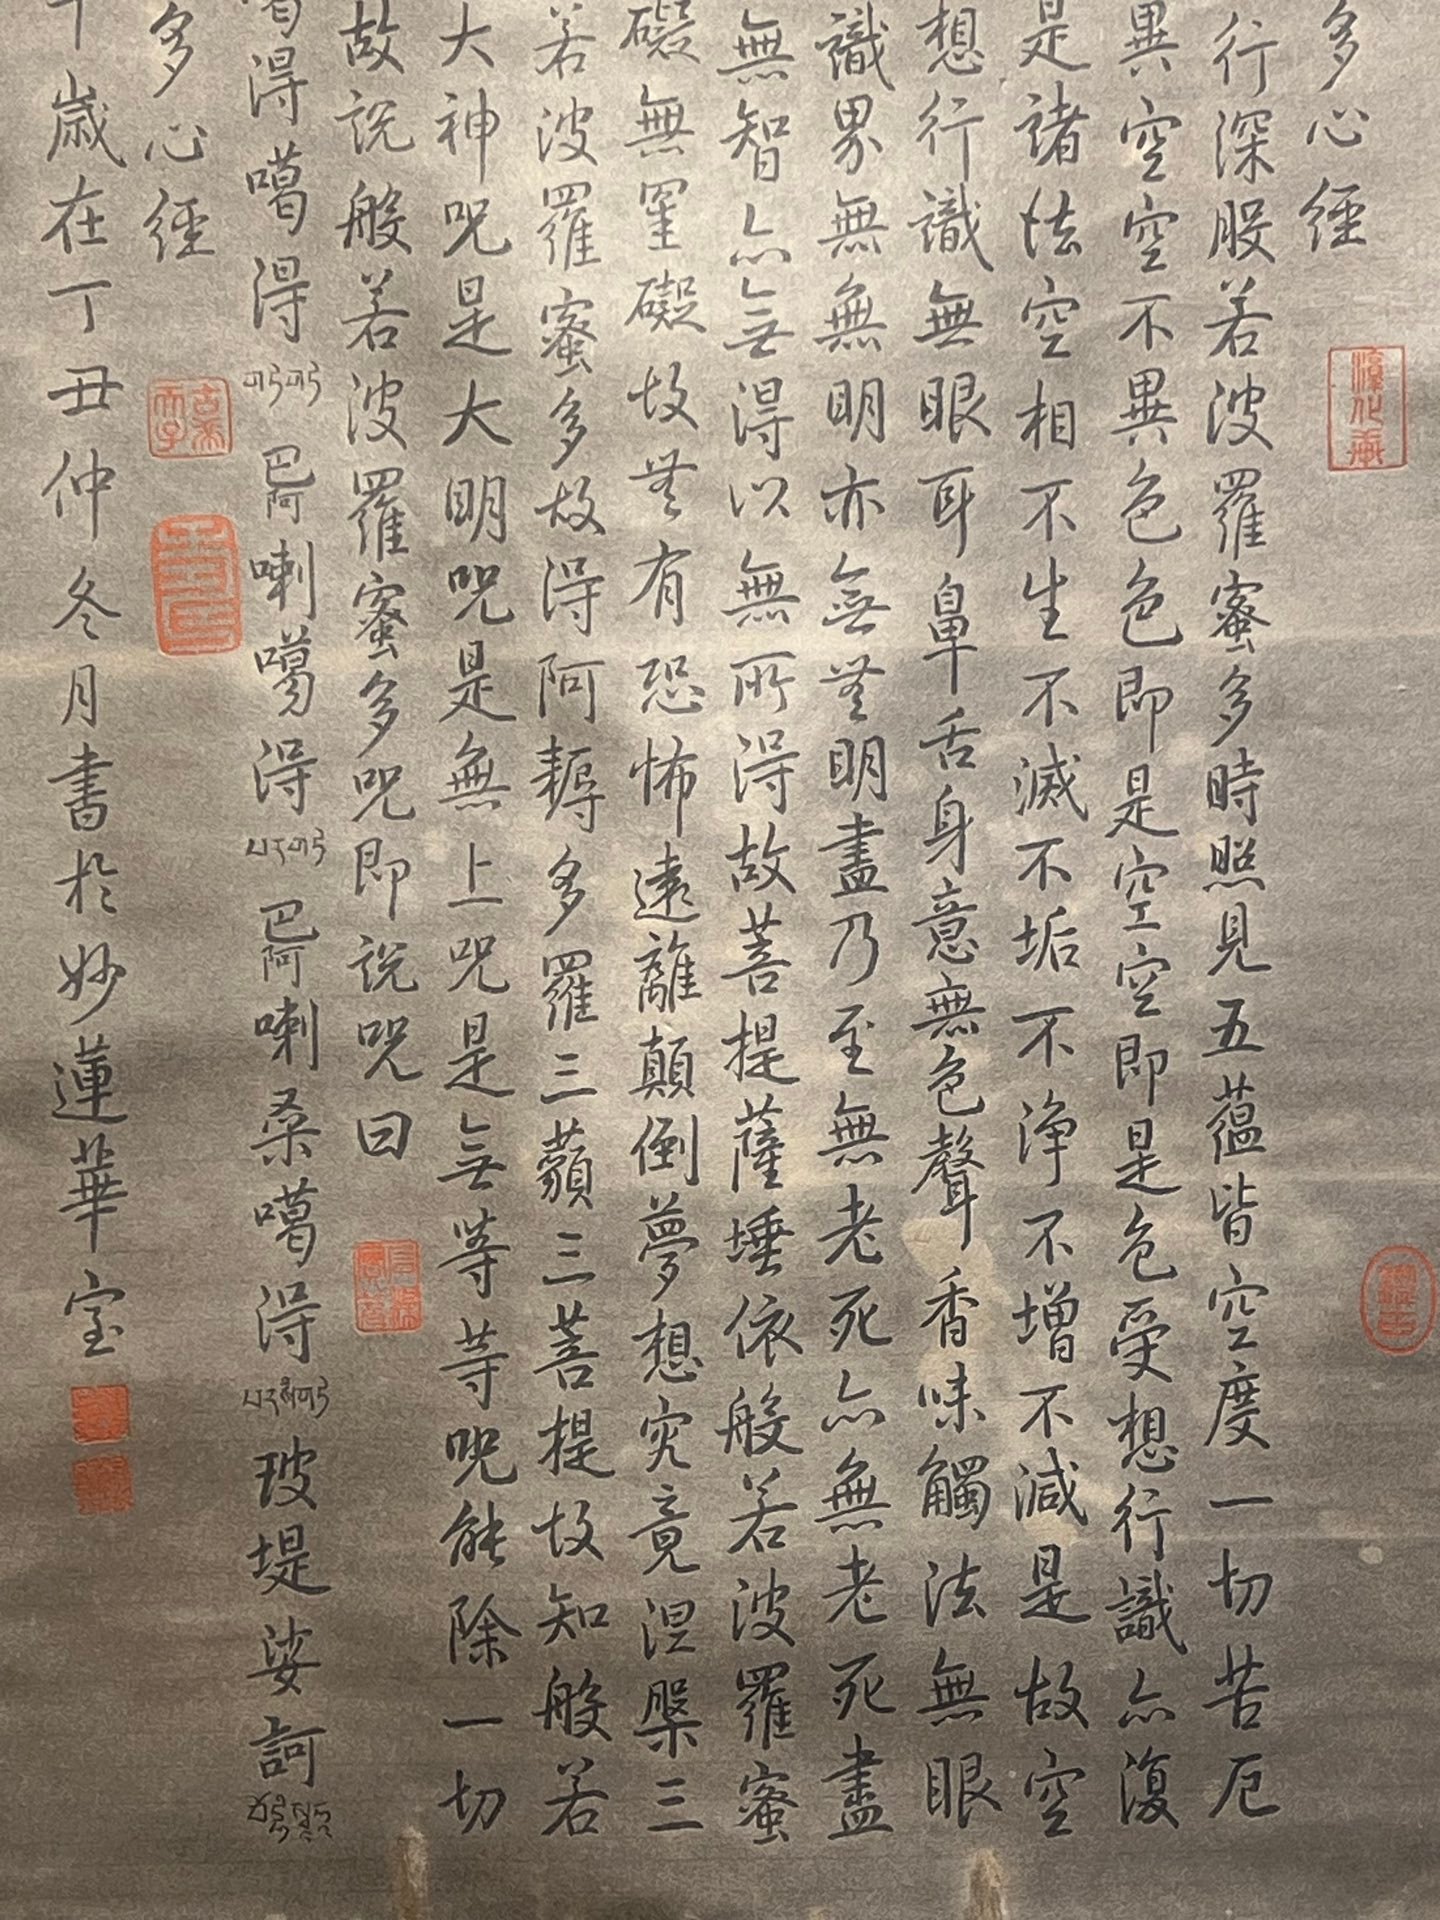 多心經
行深般若波羅蜜多時照見五蘊皆空度一切苦厄
異空空不異色色即是空空即是色受想行識亦復
是諸法空相不生不滅不垢不淨不增不減是故空
想行識無眼耳鼻舌身意無色聲香味觸法無眼
識界無無明亦無無明盡乃至無老死亦無老死盡
無智亦無得以無所得故菩提薩埵依般若波羅蜜
礙無罣礙故無有恐怖遠離顛倒夢想究竟涅槃三
若波羅蜜多故得阿耨多羅三藐三菩提故知般若
大神咒是大明咒是無上咒是無等等咒能除一切
故說般若波羅蜜多咒即說咒曰
得噶得 གཏེགཏེ 巴阿喇噶得 པརགཏེ 巴阿喇桑噶得 པརསཾགཏེ 玻堤娑訶
多心經
歲在丁丑仲冬月書於妙蓮華室
淳化軒